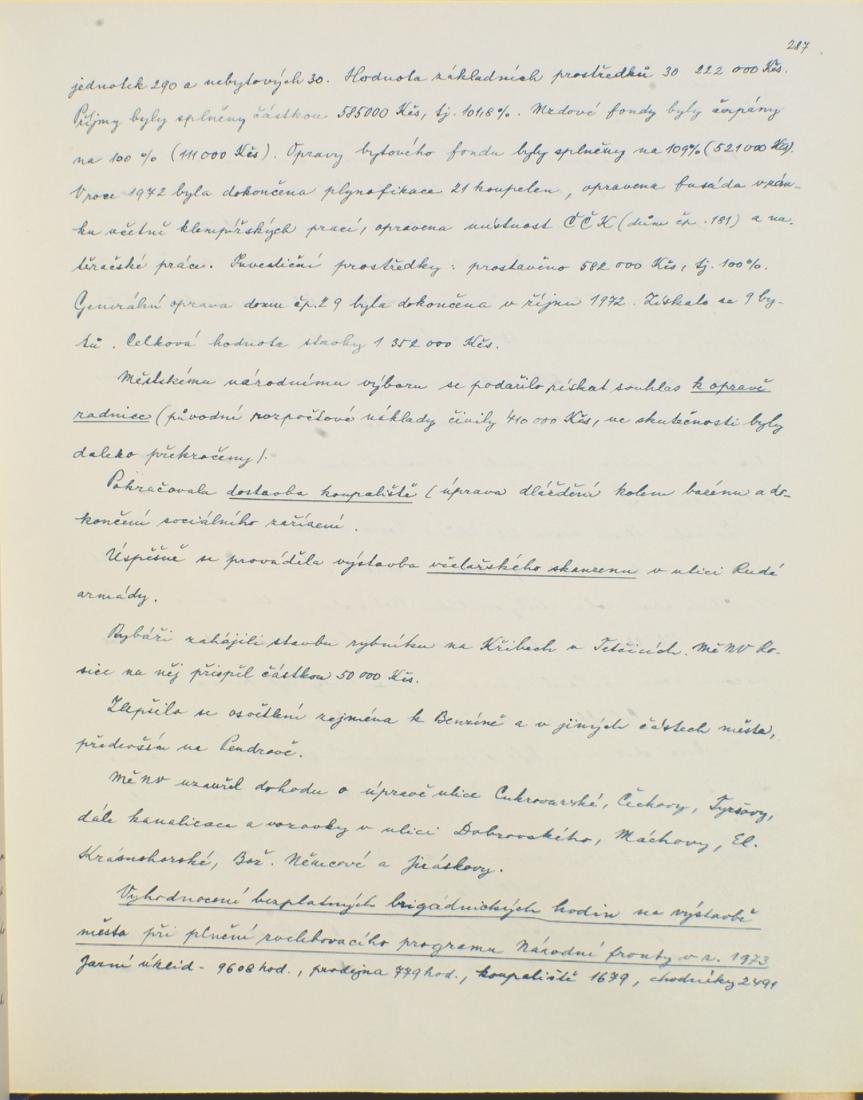 287
jednotek 290 a nebytových 30. Hodnota základních prostředků 30 222 000 Kčs.
Příjmy byly splněny částkou 585000 Kčs, tj. 101,8%. Mzdové fondy byly čerpány
na 100 % (111 000 Kčs). Opravy bytového fondu byly splněny na 109% (521 000 Kčs).
V roce 1972 byla dokončena plynofikace 21 koupelen, opravena fasáda v zám-
ku včetně klempířských prací, opravena místnost ČČK (dům čp. 181) a na-
těračské práce. Investiční prostředky: prostavěno 582 000 Kčs, tj. 100%.
Generální oprava domu čp. 29 byla dokončena v říjnu 1972. Získalo se 9 by-
tů. Celková hodnota stavby 1 352 000 Kčs.
Městskému národnímu výboru se podařilo získat souhlas k opravě
radnice (původní rozpočtové náklady činily 410 000 Kčs, ve skutečnosti byly
daleko překročeny).
Pokračovala dostavba koupaliště (úprava dláždění kolem bazénu a do-
končení sociálního zařízení.
Úspěšně se prováděla výstavba včelařského skanzenu v ulici Rudé
armády.
Rybáři zahájili stavbu rybníku na Křibech u Tetčických. MěNV Ro-
sice na něj přispěl částkou 50 000 Kčs.
Zlepšilo se osvětlení zejména k Benzině a v jiných částech města,
především na Pendrově.
MěNV uzavřel dohodu o úpravě ulice Cukrovarské, Čechovy, Tyršovy,
dále kanalizace a vozovky v ulici Dobrovského, Máchovy, El.
Krásnohorské, Bož. Němcové a Jiráskovy.
Vyhodnocení bezplatných brigádnických hodin na výstavbě
města při plnění zvelebovacího programu Národní fronty v r. 1973
Jarní úklid - 9608 hod., prodejna 779 hod., koupaliště 1679, chodníky 2491